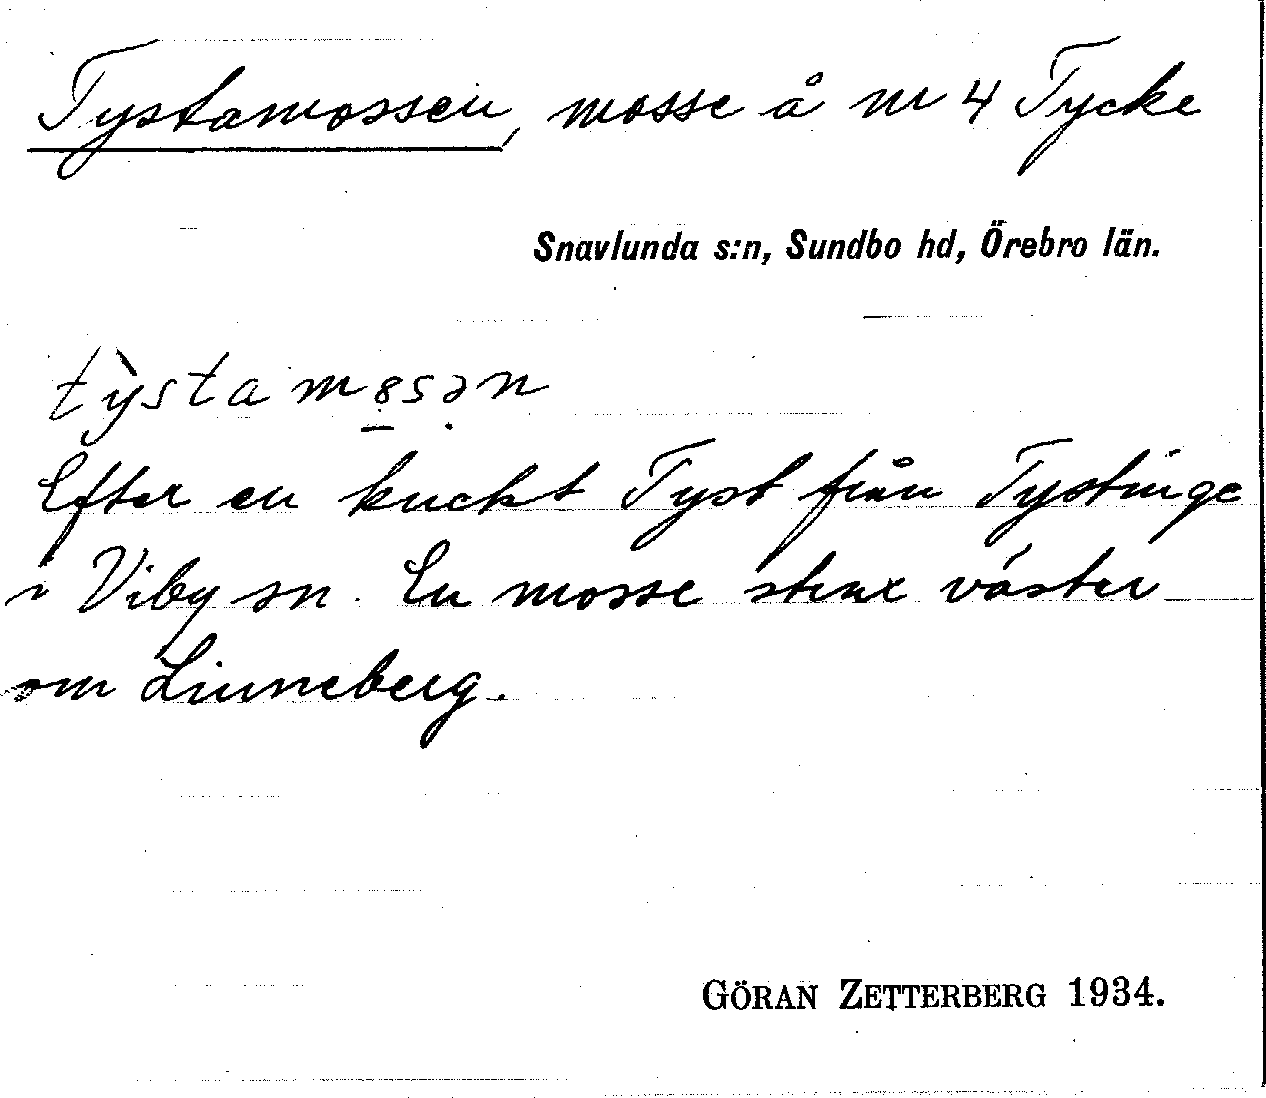 Tystamossen, mosse å nr 4 Tycke
Snavlunda s:n, Sundbo hd, Örebro län.
tỳstamȣsən
Efter en knekt Tyst från Tystinge
i Viby sn. En mosse strax väster
om Linneberg.
GÖRAN ZETTERBERG 1934.